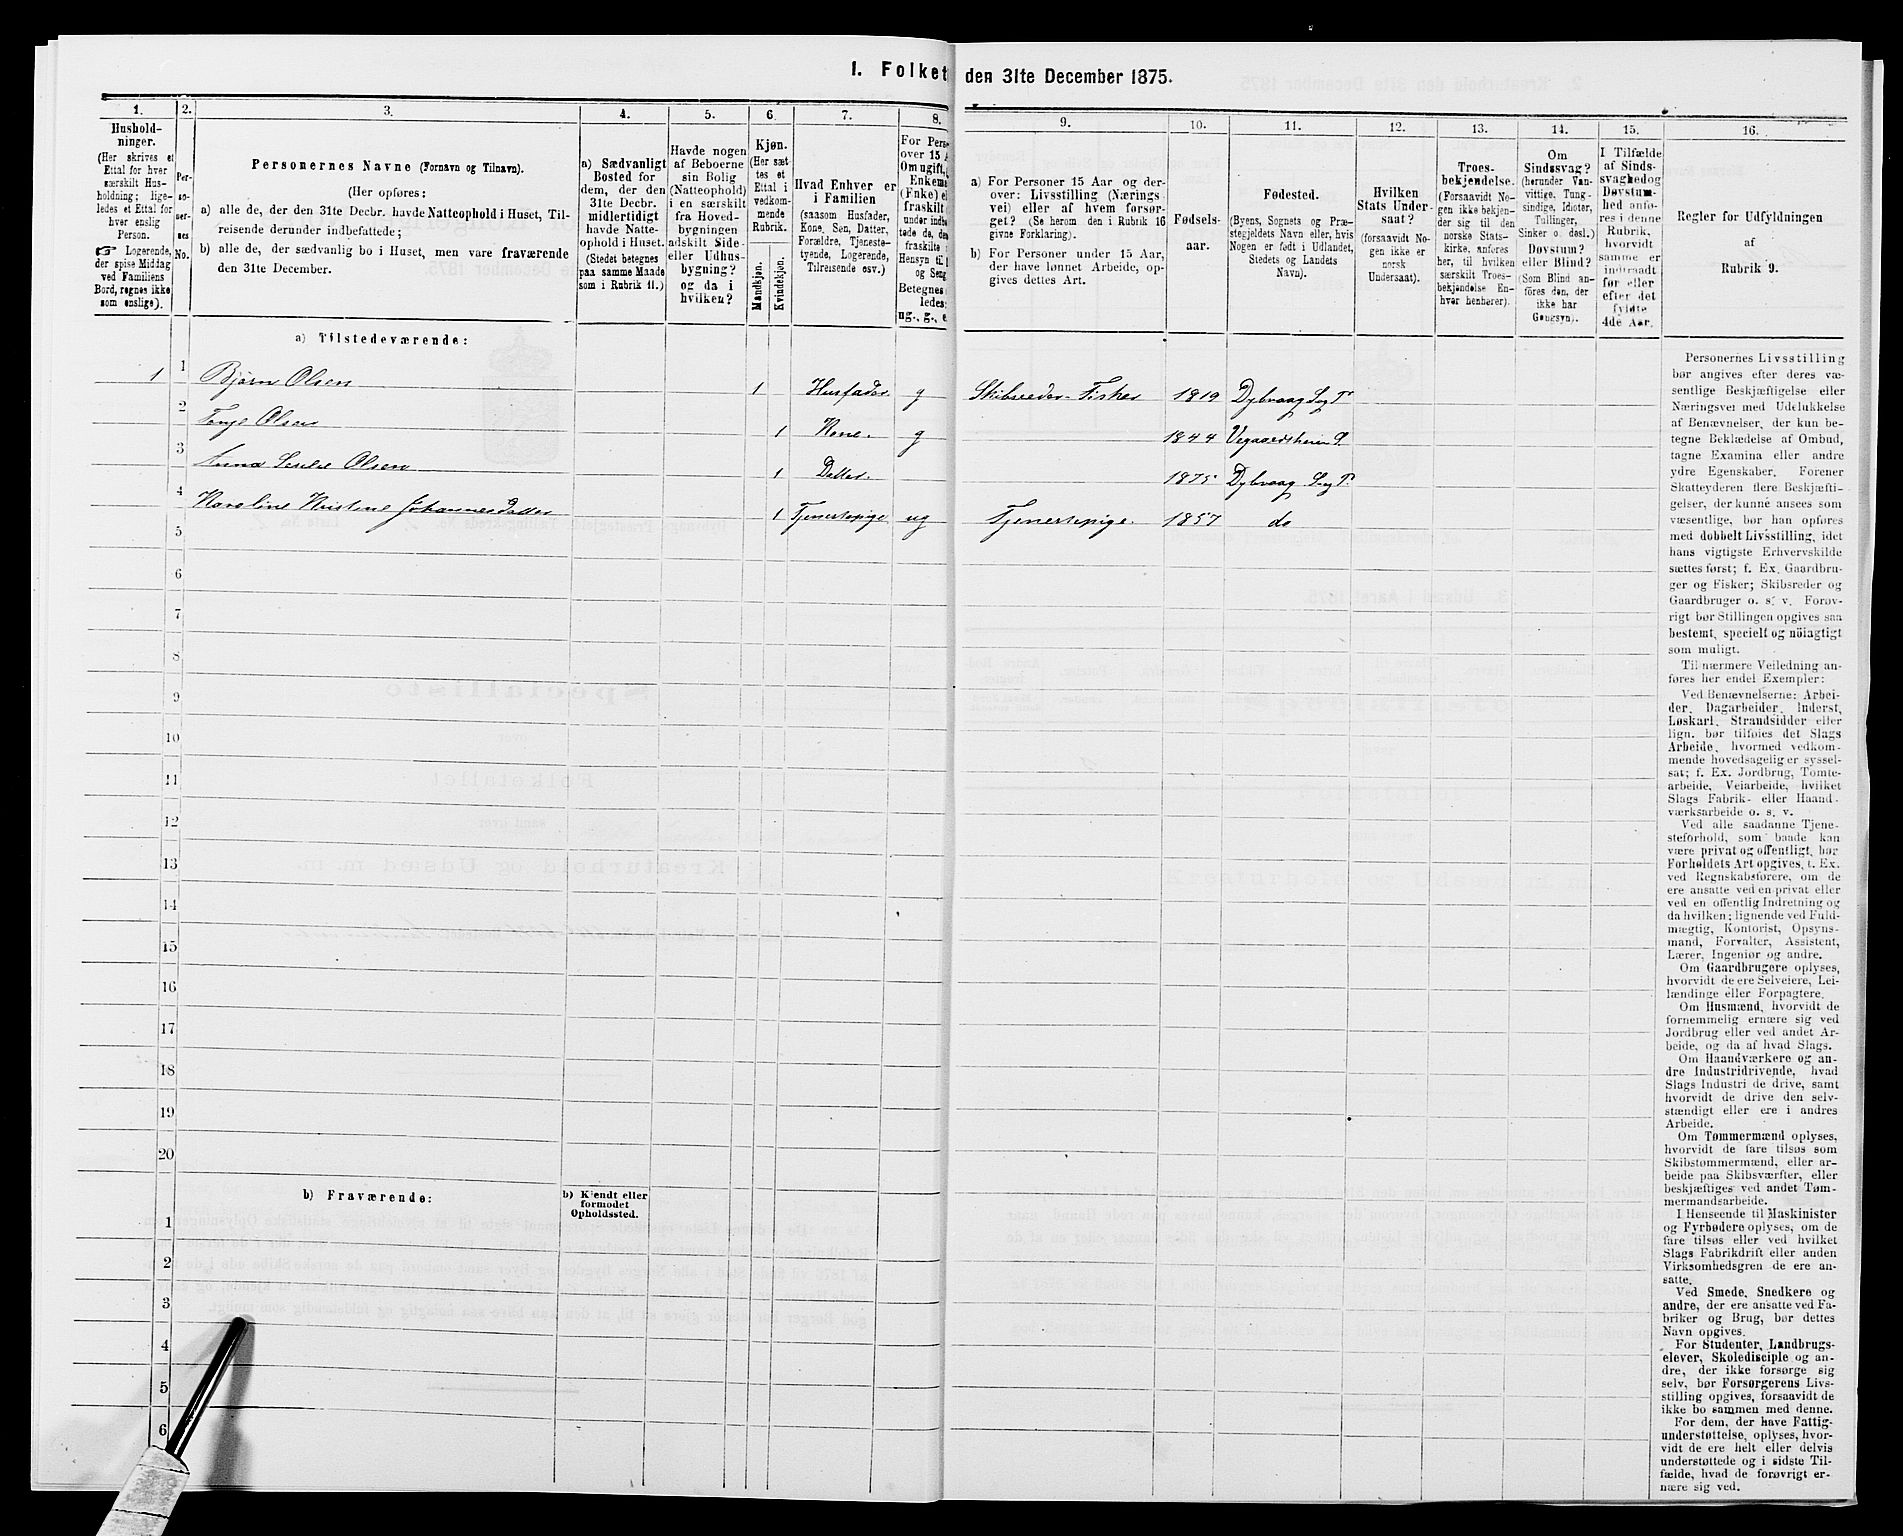 1. Folket den 31te December 1875.
1. 2. 3. 4. 5. 6. 7. 8. 9. 10. 11. 12. 13. 14. 15. 16.
Hushold-
ninger.
(Her skrives et
Ettal for hver
særskilt Hus-
holdning; lige-
ledes et Ettal for
hver enslig
Person.
☞ Logerende,
der spise Middag
ved Familiens
Bord, regnes ikke
som enslige).
Per-
so-
ner-
nes
No.
Personernes Navne (Fornavn og Tilnavn).
(Her opføres:
a) alle de, der den 31te Decbr. havde Natteophold i Huset, Til-
reisende derunder indbefattede;
b) alle de, der sædvanlig bo i Huset, men vare fraværende
den 31te December.
a) Sædvanligt
Bosted for
dem, der den
31te Decbr.
midlertidigt
havde Natte-
ophold i Huset.
(Stedet betegnes
paa samme Maade
som i Rubrik 11.)
Havde nogen
af Beboerne
sin Bolig
(Natteophold)
i en særskilt
fra Hoved-
bygningen
adskilt Side-
eller Udhus-
bygning?
og da i
hvilken?
Kjøn.
(Her sæt-
tes et
Ettal i
vedkom-
mende
Rubrik.
Mandkjøn.
Kvindekjøn.
Hvad Enhver er
i Familien
(saasom Husfader,
Kone, Søn, Datter,
Forældre, Tjeneste-
tyende, Logerende,
Tilreisende osv.)
For Pers
over 15 A
Om ugift,
Enkema
(Enke) e
fraskilt
under indbe
tede de,
fraskilte
Hensyn til
og Seng
Betegnes
ledes:
ug., g., e.
a) For Personer 15 Aar og der-
over: Livsstilling (Nærings-
vei) eller af hvem forsør-
get? (Se herom den i Rubrik 16
givne Forklaring).
b) For Personer under 15 Aar,
der have lønnet Arbeide, op-
gives dettes Art.
Fødsels-
aar.
Fødested.
(Byens, Sognets og Præ-
stegjeldets Navn eller, hvis
Nogen er født i Udlandet,
Stedets og Landets
Navn).
Hvilken
Stats Under-
saat?
(forsaavidt No-
gen ikke er
norsk
Undersaat).
Troes-
bekjendelse.
(Forsaavidt No-
gen ikke bekjen-
der sig til den
norske Stats-
kirke, anføres
her, til hvilken
særskilt Troes-
bekjendelse En-
hver henhører).
Om
Sindssvag?
(herunder Van-
vittige, Tung-
sindige, Idioter,
Tullinger,
Sinker o. desl.)
Døvstum?
eller Blind?
(Som Blind an-
føres den, der
ikke har
Gangsyn).
I Tilfælde
af Sinds-
svaghed og
Døvstum-
hed anfø-
res i denne
Rubrik,
hvorvidt
samme er
indtraadt
før eller
efter det
fyldte
4de Aar.
Regler for Udfyldningen
af
Rubrik 9.
a) Tilstedeværende:
1 1 Bjørn Olsen 1 Husfader g Skibsreder - Fisker 1819 Dybvaag S. og P.
2 Tonje Olsen 1 Kone. g 1844 Vegaardsheien P.
3 Olsen 1 Datter. 1875 Dybvaag S. og P.
4 Karoline Kristine Johannesdatter 1 Tjenestepige ug Tjenestepige. 1857 do
5
6
7
8
9
10
11
12
13
14
15
16
17
18
19
20
b) Fraværende:
b) Kjendt eller
formodet
Opholdssted.
1
2
3
4
5
6
Personernes Livsstilling
bør angives efter deres væ-
sentlige Beskjæftigelse eller
Næringsvei med Udelukkelse
af Benævnelser, der kun be-
tegne Beklædelse af Ombud,
tagne Examina eller andre
ydre Egenskaber. Forener
Skatteyderen flere Beskjæfti-
gelser, der kunne ansees som
væsentlige, bør han opføres
med dobbelt Livsstilling, idet
hans vigtigste Erhvervskilde
sættes først; f. Ex. Gaardbru-
ger og Fisker; Skibsreder og
Gaardbruger o. s. v. Forøv-
rigt bør Stillingen opgives saa
bestemt, specielt og nöiagtigt
som muligt.
Til nærmere Veiledning an-
føres her endel Exempler:
Ved Benævnelserne: Arbei-
der, Dagarbeider, Inderst,
Løskarl, Strandsidder eller
lign. bør tilføies det Slags
Arbeide, hvormed vedkom-
mende hovedsagelig er syssel-
sat; f. Ex. Jordbrug, Tomte-
arbeide, Veiarbeide, hvilket
Slags Fabrik- eller Haand-
værksarbeide o. s. v.
Ved alle saadanne Tjene-
steforhold, som baade kan
være privat og offentligt, bør
Forholdets Art opgives, f. Ex.
ved Regnskabsførere, om de
ere ansatte ved en privat eller
ved en offentlig Indretning og
da hvilken; lignende ved Fuld-
mægtig, Kontorist, Opsyns-
mand, Forvalter, Assistent,
Lærer, Ingeniør og andre.
Om Gaardbrugere oplyses,
hvorvidt de ere Selveiere, Lei-
lændinge eller Forpagtere.
Om Husmænd, hvorvidt de
fornemmelig ernære sig ved
Jordbrug eller ved andet Ar-
beide, og da af hvad Slags.
Om Haandværkere og an-
dre Industridrivende, hvad
Slags Industri de drive, samt
hvorvidt de drive den selv-
stændigt eller ere i andres
Arbeide.
Om Tømmermænd oplyses,
hvorvidt de fare tilsøs som
Skibstømmermænd, eller ar-
beide paa Skibsværfter, eller
beskjæftiges ved andet Tøm-
mermandsarbeide.
I Henseende til Maskinister
og Fyrbødere oplyses, om de
fare tilsøs eller ved hvilket
Slags Fabrikdrift eller anden
Virksomhedsgren de ere an-
satte.
Ved Smede, Snedkere og
andre, der ere ansatte ved Fa-
briker og Brug, bør dettes
Navn opgives.
For Studenter, Landbrugs-
elever, Skoledisciple og an-
dre, der ikke forsørge sig
selv, bør Forsørgerens Livs-
stilling opgives, forsaavidt de
ikke bo sammen med denne.
For dem, der have Fattig-
understøttelse, oplyses, hvor-
vidt de ere helt eller delvis
understøttede og i sidste Til-
fælde, hvad de forøvrigt er-
nære sig ved.